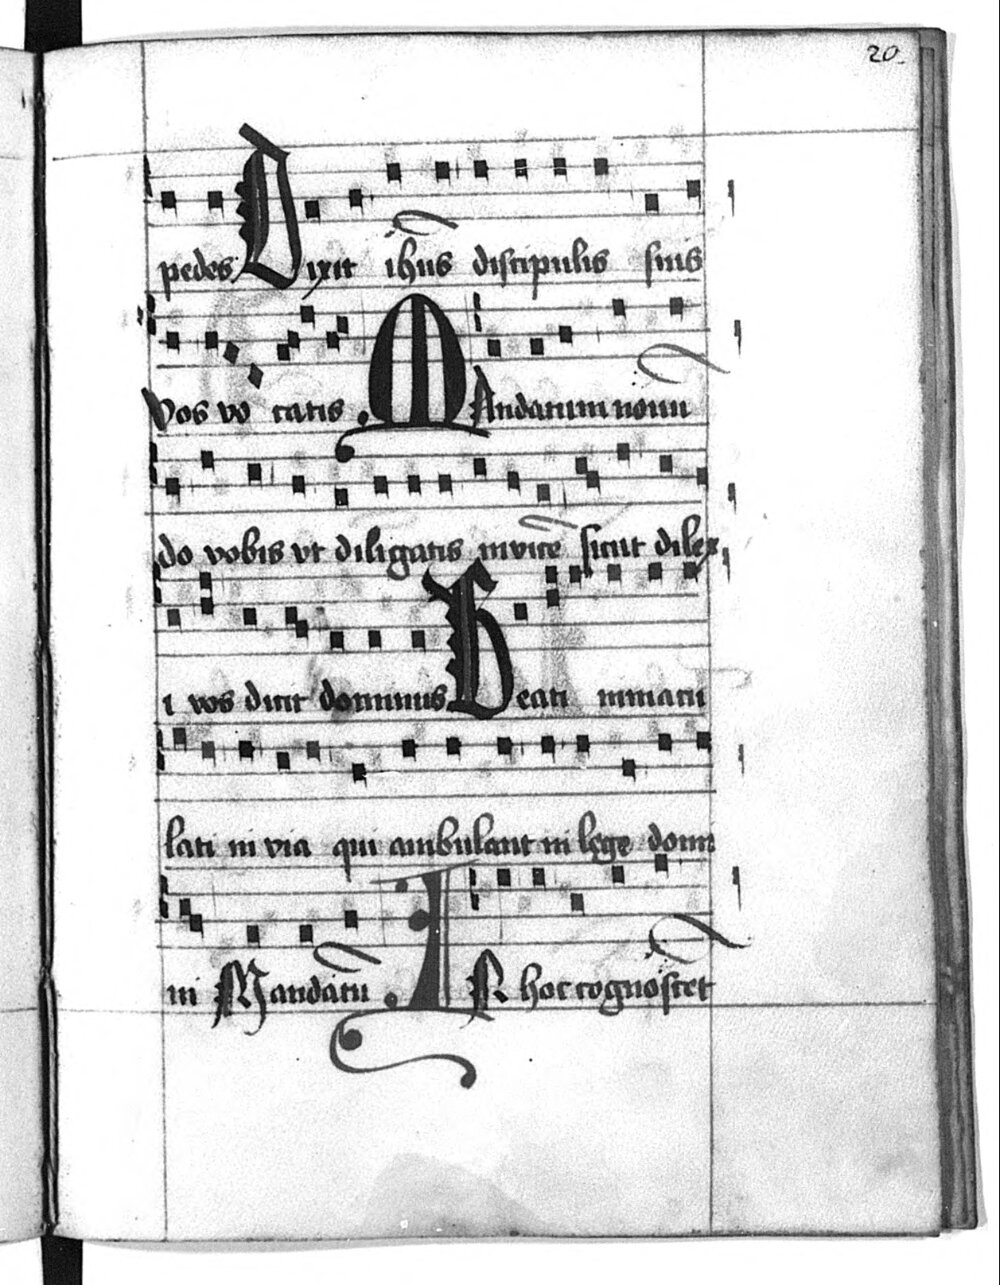 20
pedes Dixit ihūs discipulis suis
Vos vo catis . MAndatum nouū
do vobis vt diligatis inuicē sicut dilex
i vos dicit dominus Beati inmacu
lati in via qui ambulant in lege domi
ni Mandatū . IN hoc cognoscēt